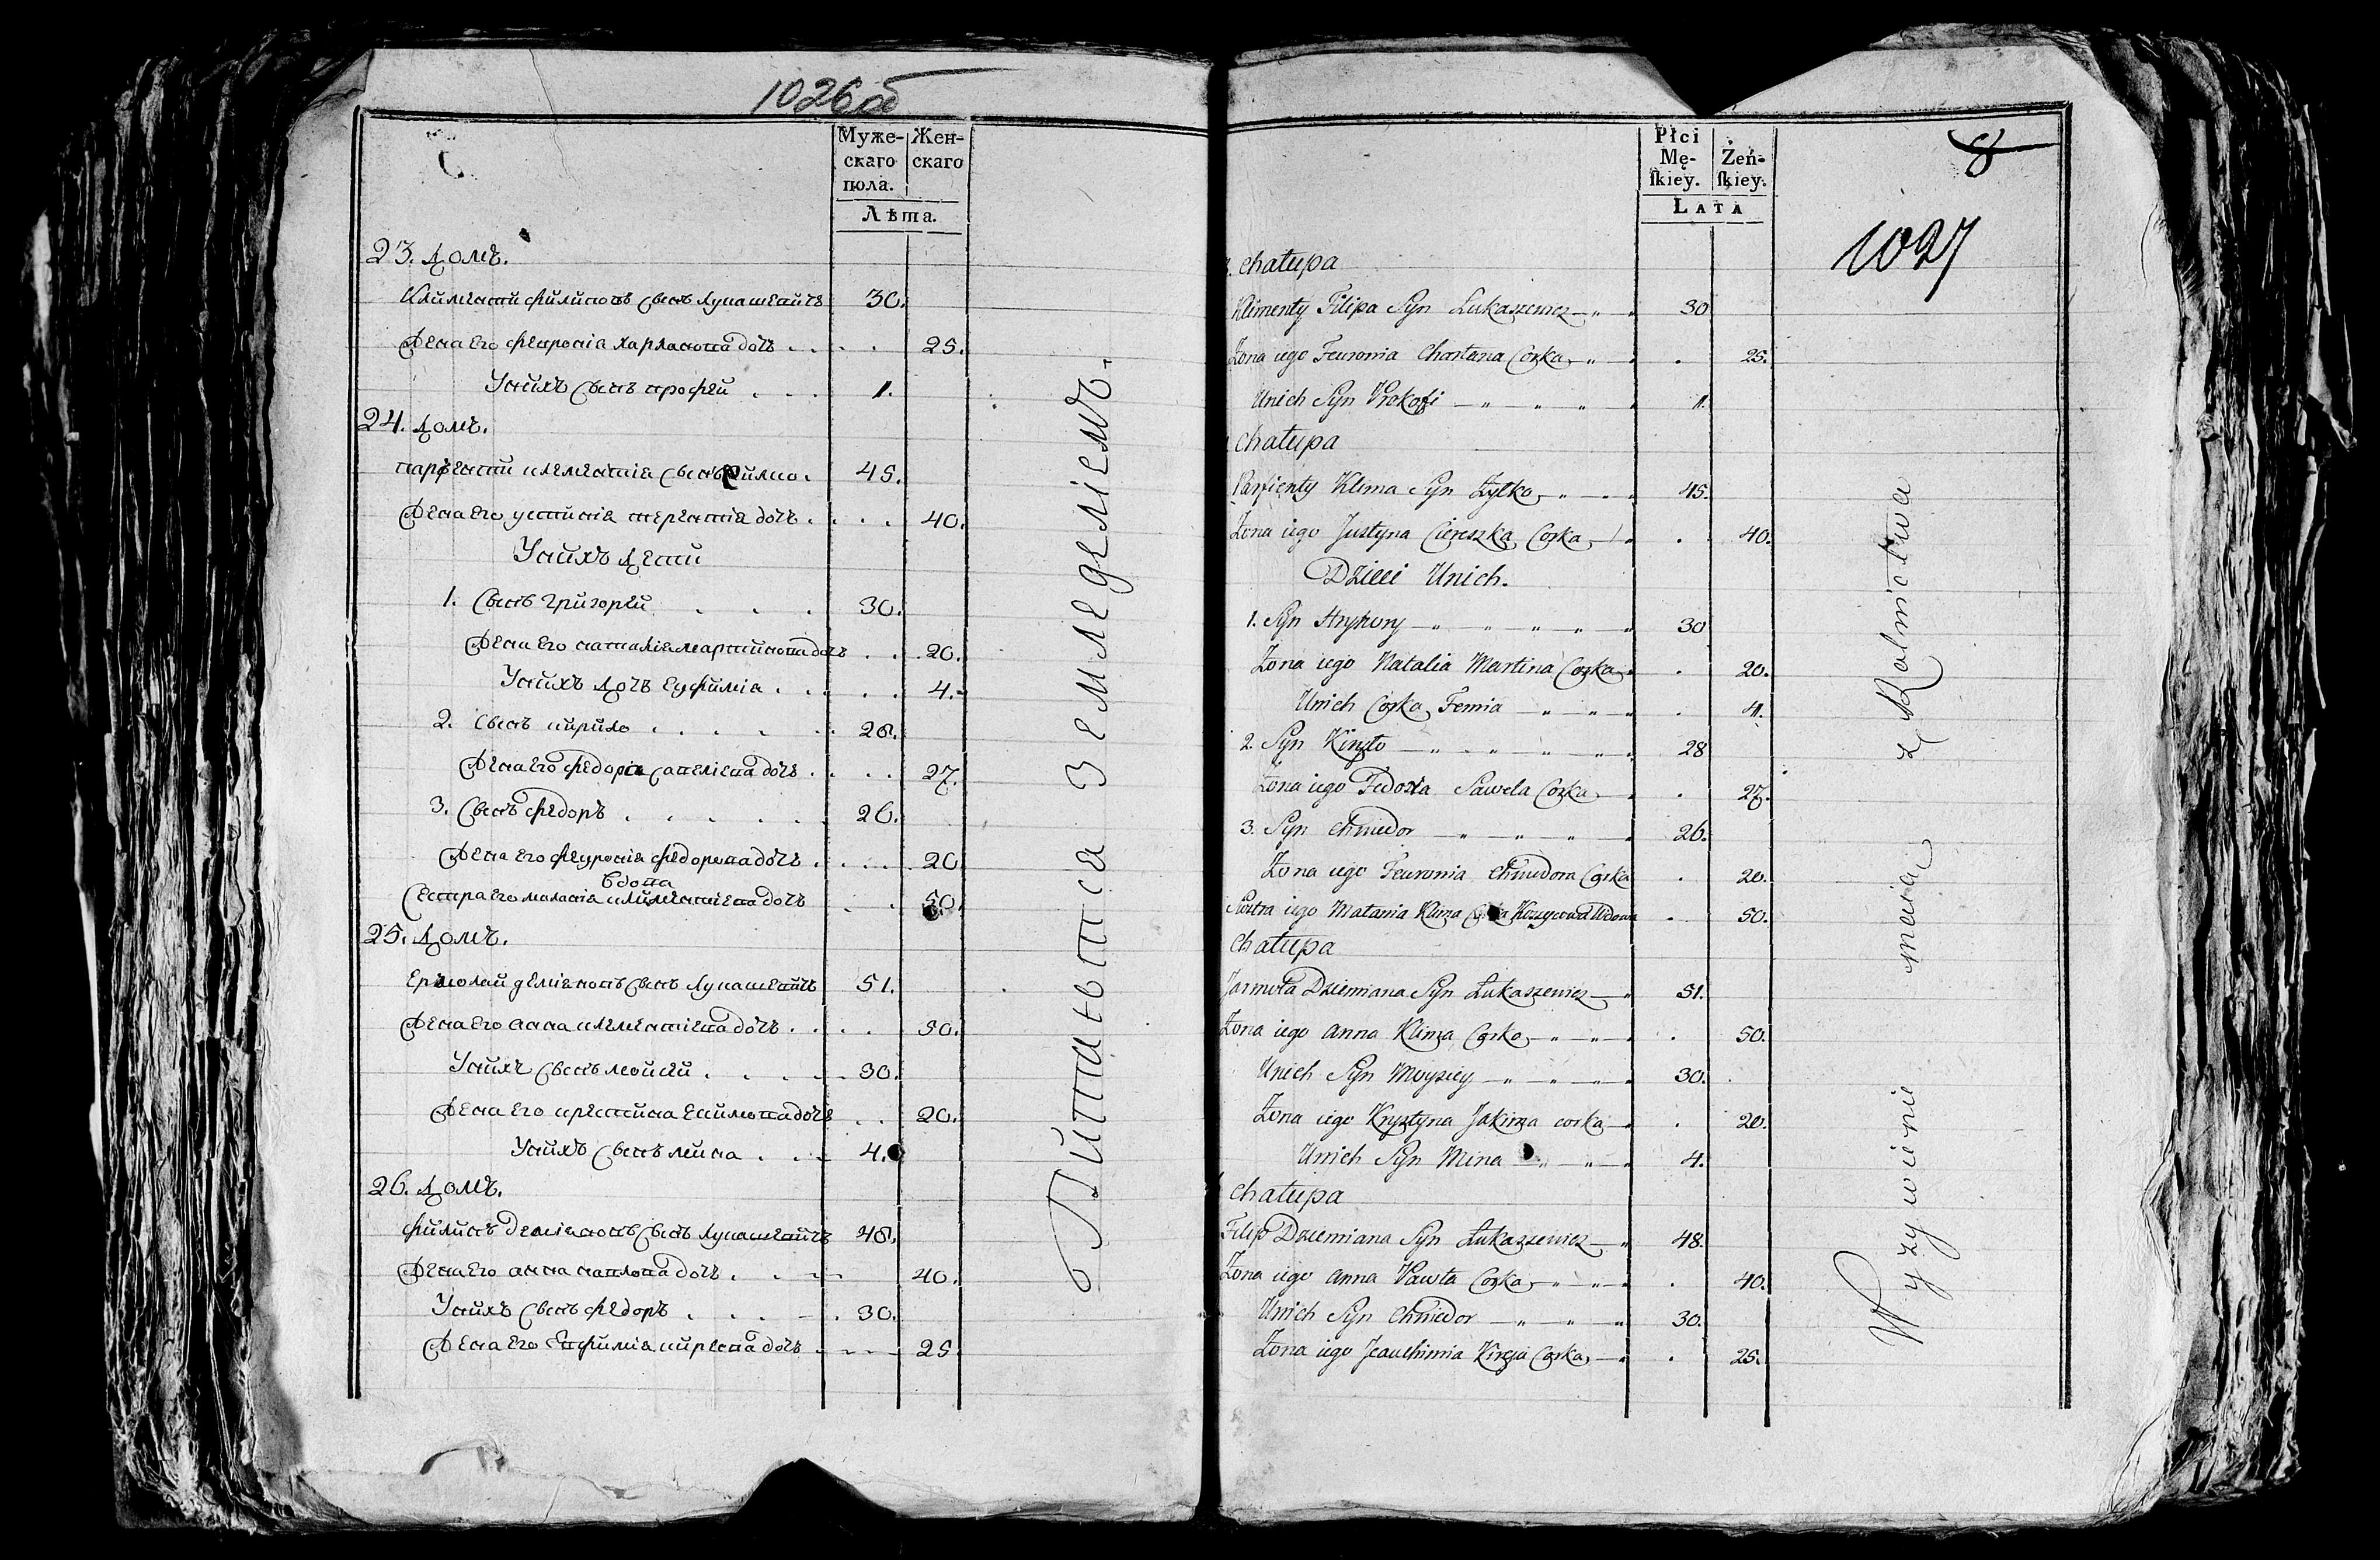 1026об
Муже-
скаго
пола.
Жен-
скаго
Лѣта.
23. домъ.
Климентий филиповъ сынъ лукашевичъ 30.
Жена его феврония харланова дочь 25.
У нихъ сынъ прокофей 1.
24. домъ.
парфентий климентія сынъ жилко. 45.
Жена его устиния терентия дочь 40.
У нихъ дети
1. Сынъ григорей 30.
Жена его наталія мартинова дочь 20.
У нихъ дочь еуфимія 4.
2. Сынъ кирило 28.
Жена его федора савеліева дочь 27.
3. Сынъ федоръ 26.
Жена его феуронія федорова дочь 20
вдова
Сестра его маланія климентіева дочь 50.
25. домъ.
ермолай деміяновъ сынъ лукашевичъ 51.
Жена его анна климентіева дочь 50.
У нихъ сынъ мойсей 30.
Жена его крестина екимова дочь 20.
У нихъ сынъ мина 4.
26. домъ.
филипъ деміяновъ сынъ лукашевичъ 48.
Жена его анна павлова дочь 40.
У нихъ сынъ федоръ 30.
Жена его евфимія кирева дочь 25
Питаются земледелиемъ.
Płci
Mę-
ſkiey.
Żeń-
ſkiey.
LATA
8
1027
chałupa
Klimenty Filipa Syn Łukaszewicz 30
Żona iego Feuronia Charłana Corka 25.
Unich Syn Prokofi 1.
chałupa
Parfienty Klima Syn Żyłko 45.
Żona iego Justyna Ciereszka Corka 40.
Dzieci Unich.
1. Syn Hryhory 30
Żona iego Natalia Martina Corka 20.
Unich Corka Femia 4.
2. Syn Kiryło 28
Żona iego Fedora Sawela Corka 27.
3. Syn Chwiedor 26.
Żona iego Feuronia Chwiedora Corka 20.
Siostra iego Matania Klima Wdowa 50.
chałupa
Jarmoła Dziemiana Syn Łukaszewicz 51.
Żona iego Anna Klima Corka 50.
Unich Syn Moyziey 30.
Żona iego Krystyna Jakima corka 20.
Unich Syn Mina 4.
chałupa
Filip Dziemiana Syn Łukaszewicz 48.
Żona iego Anna Pawła Corka 40.
Unich Syn Chwiedor 30.
Żona iego Jeauchimia Kireja Corka 25.
Wyzywienie maia z Rolnictwa